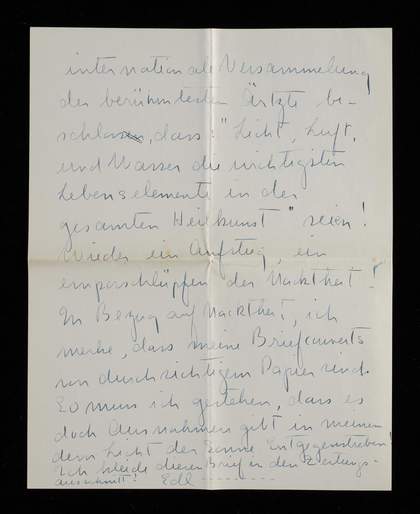 internationale Versammelung
der berühmtesten Ärtzte be-
schlossen, dass: "Licht, Luft,
und Wasser die wichtigsten
Lebenselemente in der
gesamten Heilkunst" seien!
Wieder ein Aufstieg, ein
emporschlüpfen der Nacktheit!
In Bezug auf Nacktheit, ich
merke, dass meine Briefcouverts
von durchsichtigem Papier sind.
So muss ich gestehen, dass es
doch Ausnahmen gibt in meinem
dem Licht der Sonne Entgegenstreben!
Ich kleide diesen Brief in den Zeitungs-
ausschnitt!